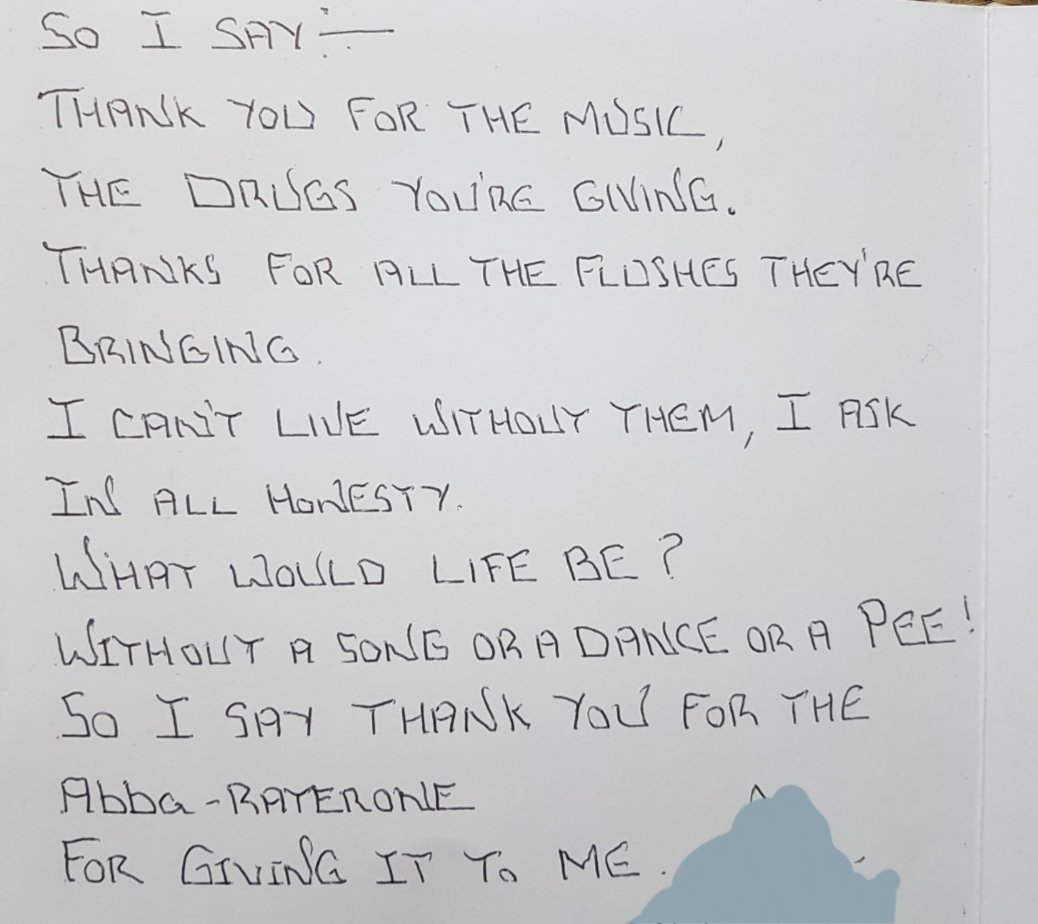 So I SAY:—
THANK YOU FOR THE MUSIC,
THE DRUGS YOU'RE GIVING.
THANKS FOR ALL THE FLUSHES THEY'RE
BRINGING.
I CAN'T LIVE WITHOUT THEM, I ASK
IN ALL HONESTY.
WHAT WOULD LIFE BE?
WITHOUT A SONG OR A DANCE OR A PEE!
So I SAY THANK YOU FOR THE
Abba-RATERONE
FOR GIVING IT To ME.